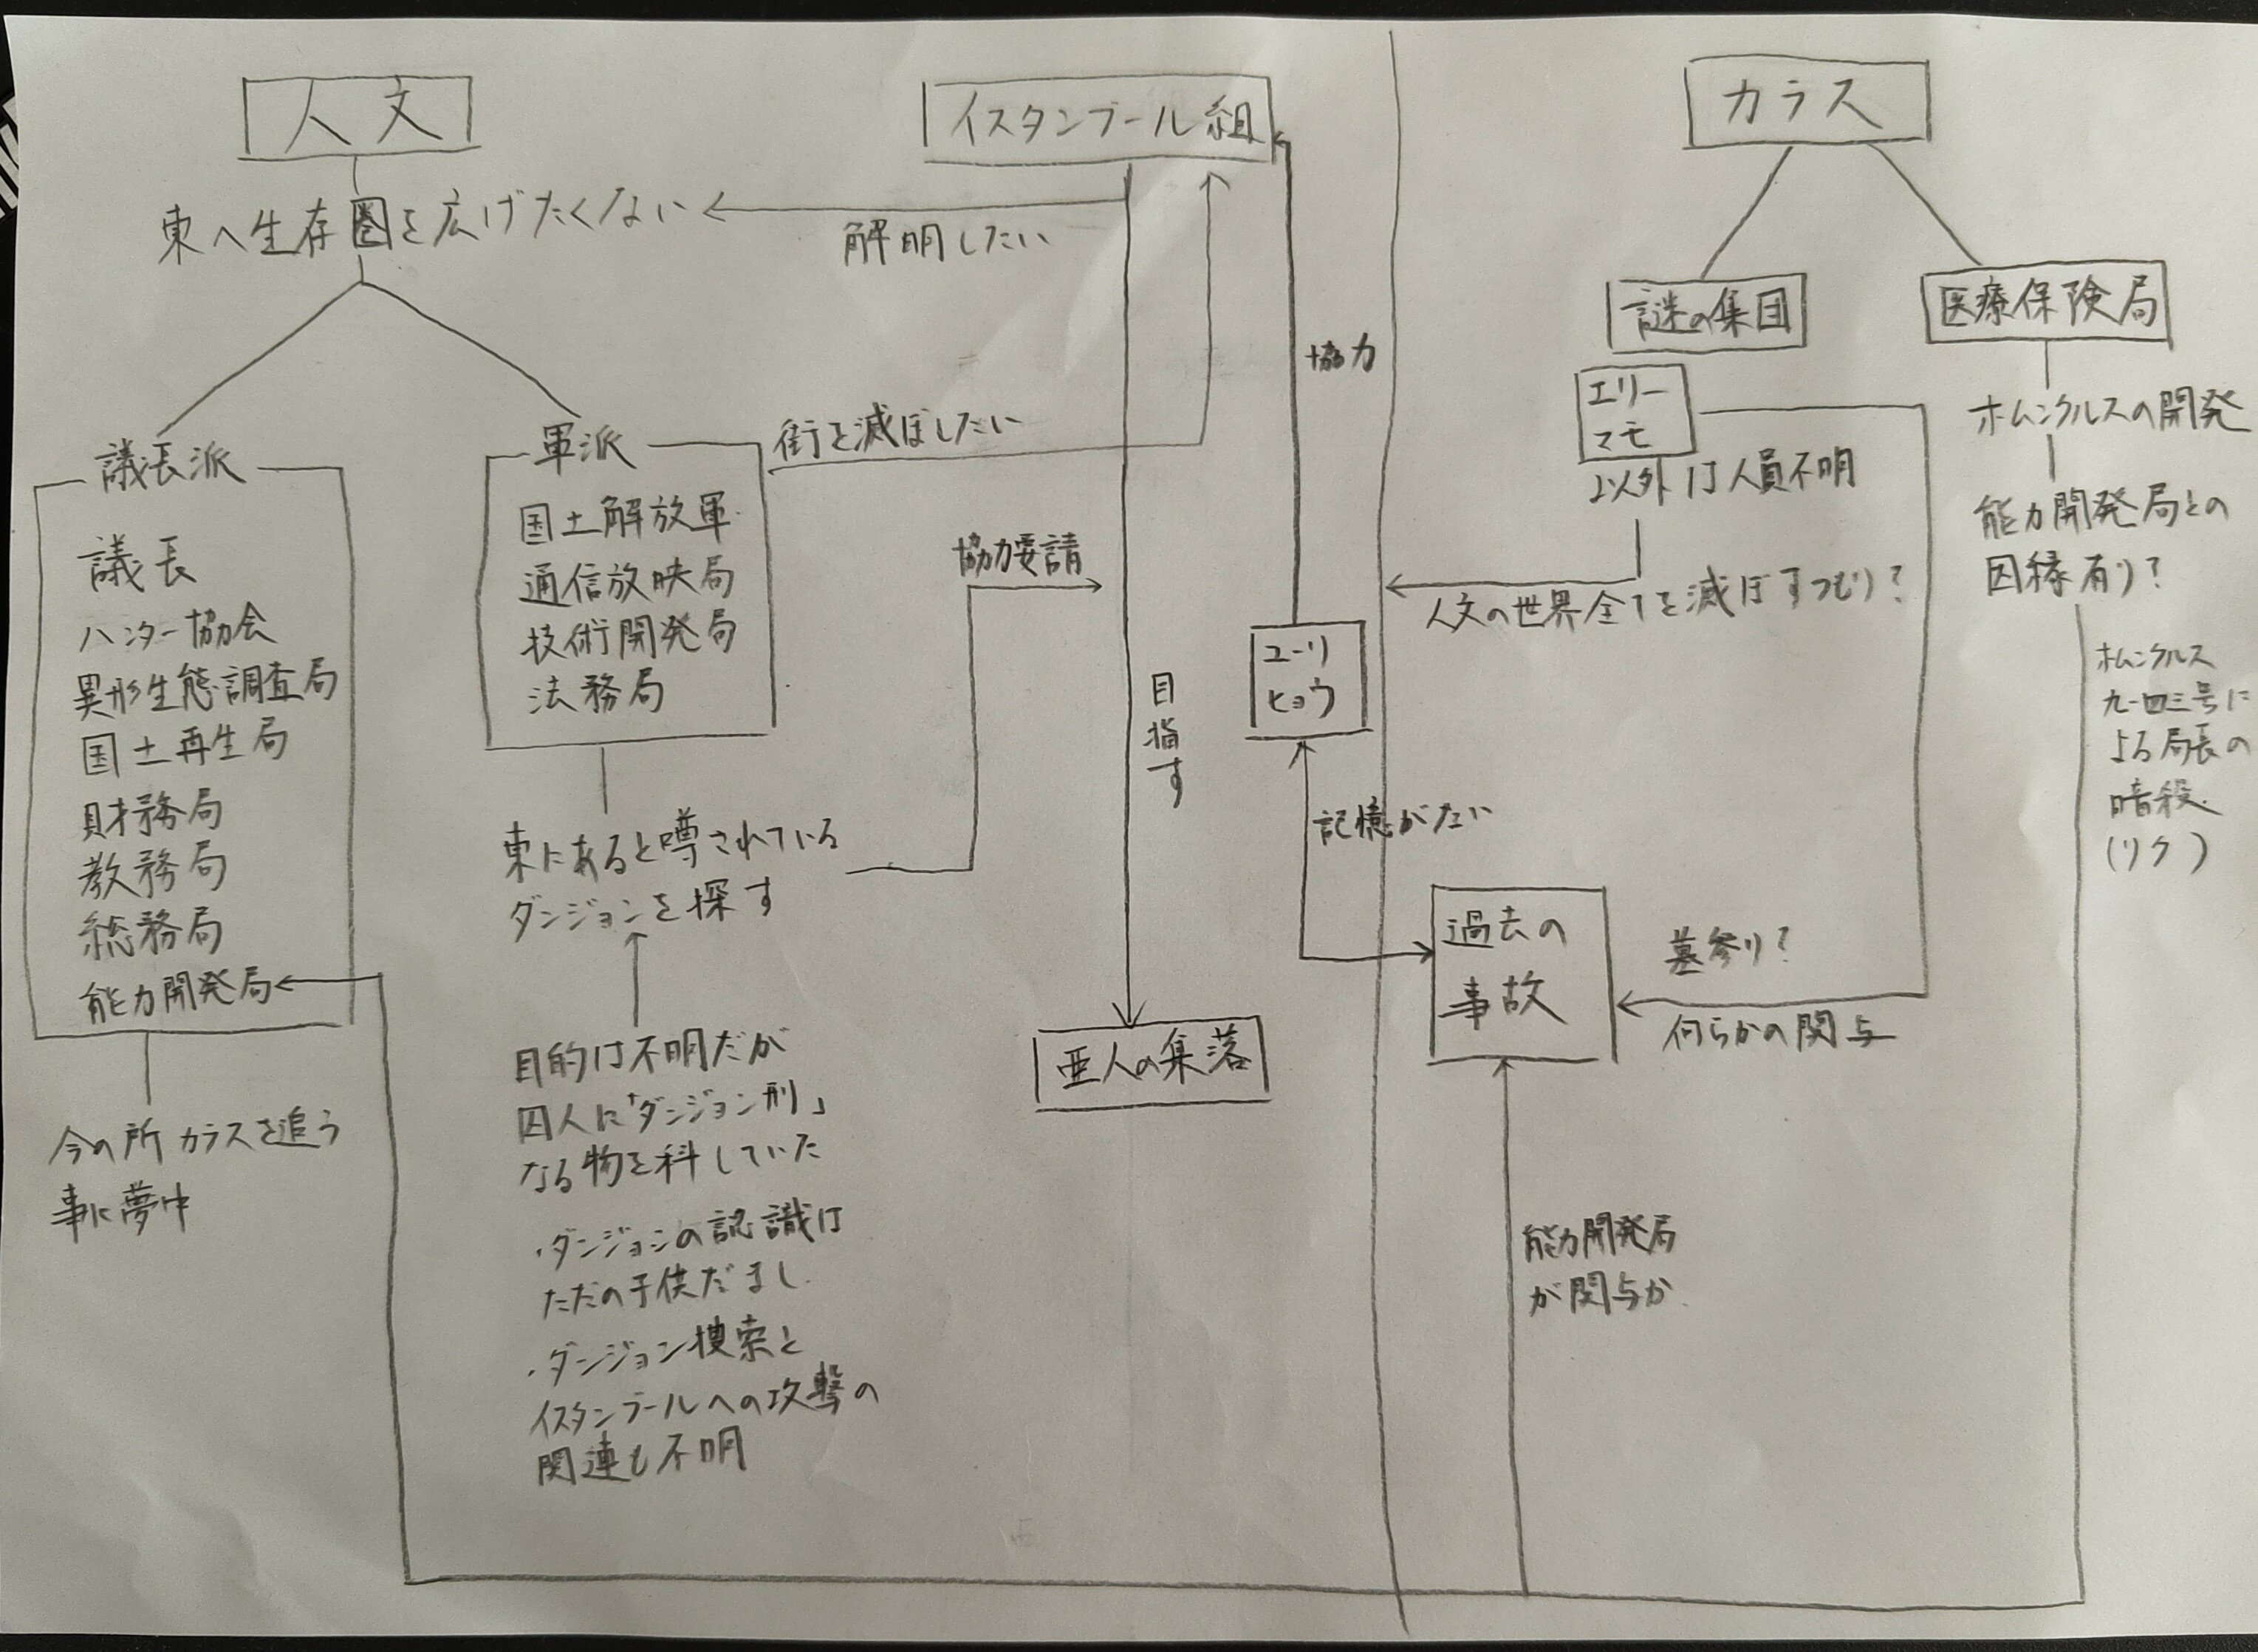 人文
東へ生存圏を広げたくない
議長派
議長
ハンター協会
異形生態調査局
国土再生局
財務局
教務局
総務局
能力開発局
今の所カラスを追う
事に夢中
軍派
国土解放軍
通信放映局
技術開発局
法務局
東にあると噂されている
ダンジョンを探す
目的は不明だが
囚人に「ダンジョン刑」
なる物を科していた
・ダンジョンの認識は
ただの子供だまし.
・ダンジョン捜索と
イスタンブールへの攻撃の
関連も不明
イスタンブール組
解明したい
街を滅ぼしたい
協力要請
目指す
亜人の集落
協力
ユーリ
ヒョウ
記憶がない
カラス
謎の集団
エリー
マモ
以外は人員不明
人文の世界全てを滅ぼすつもり?
過去の
事故
墓参り?
何らかの関与
能力開発局
が関与か.
医療保険局
ホムンクルスの開発
能力開発局との
因縁有り?
ホムンクルス
九一四三号に
よる局長の
暗殺.
(リク)